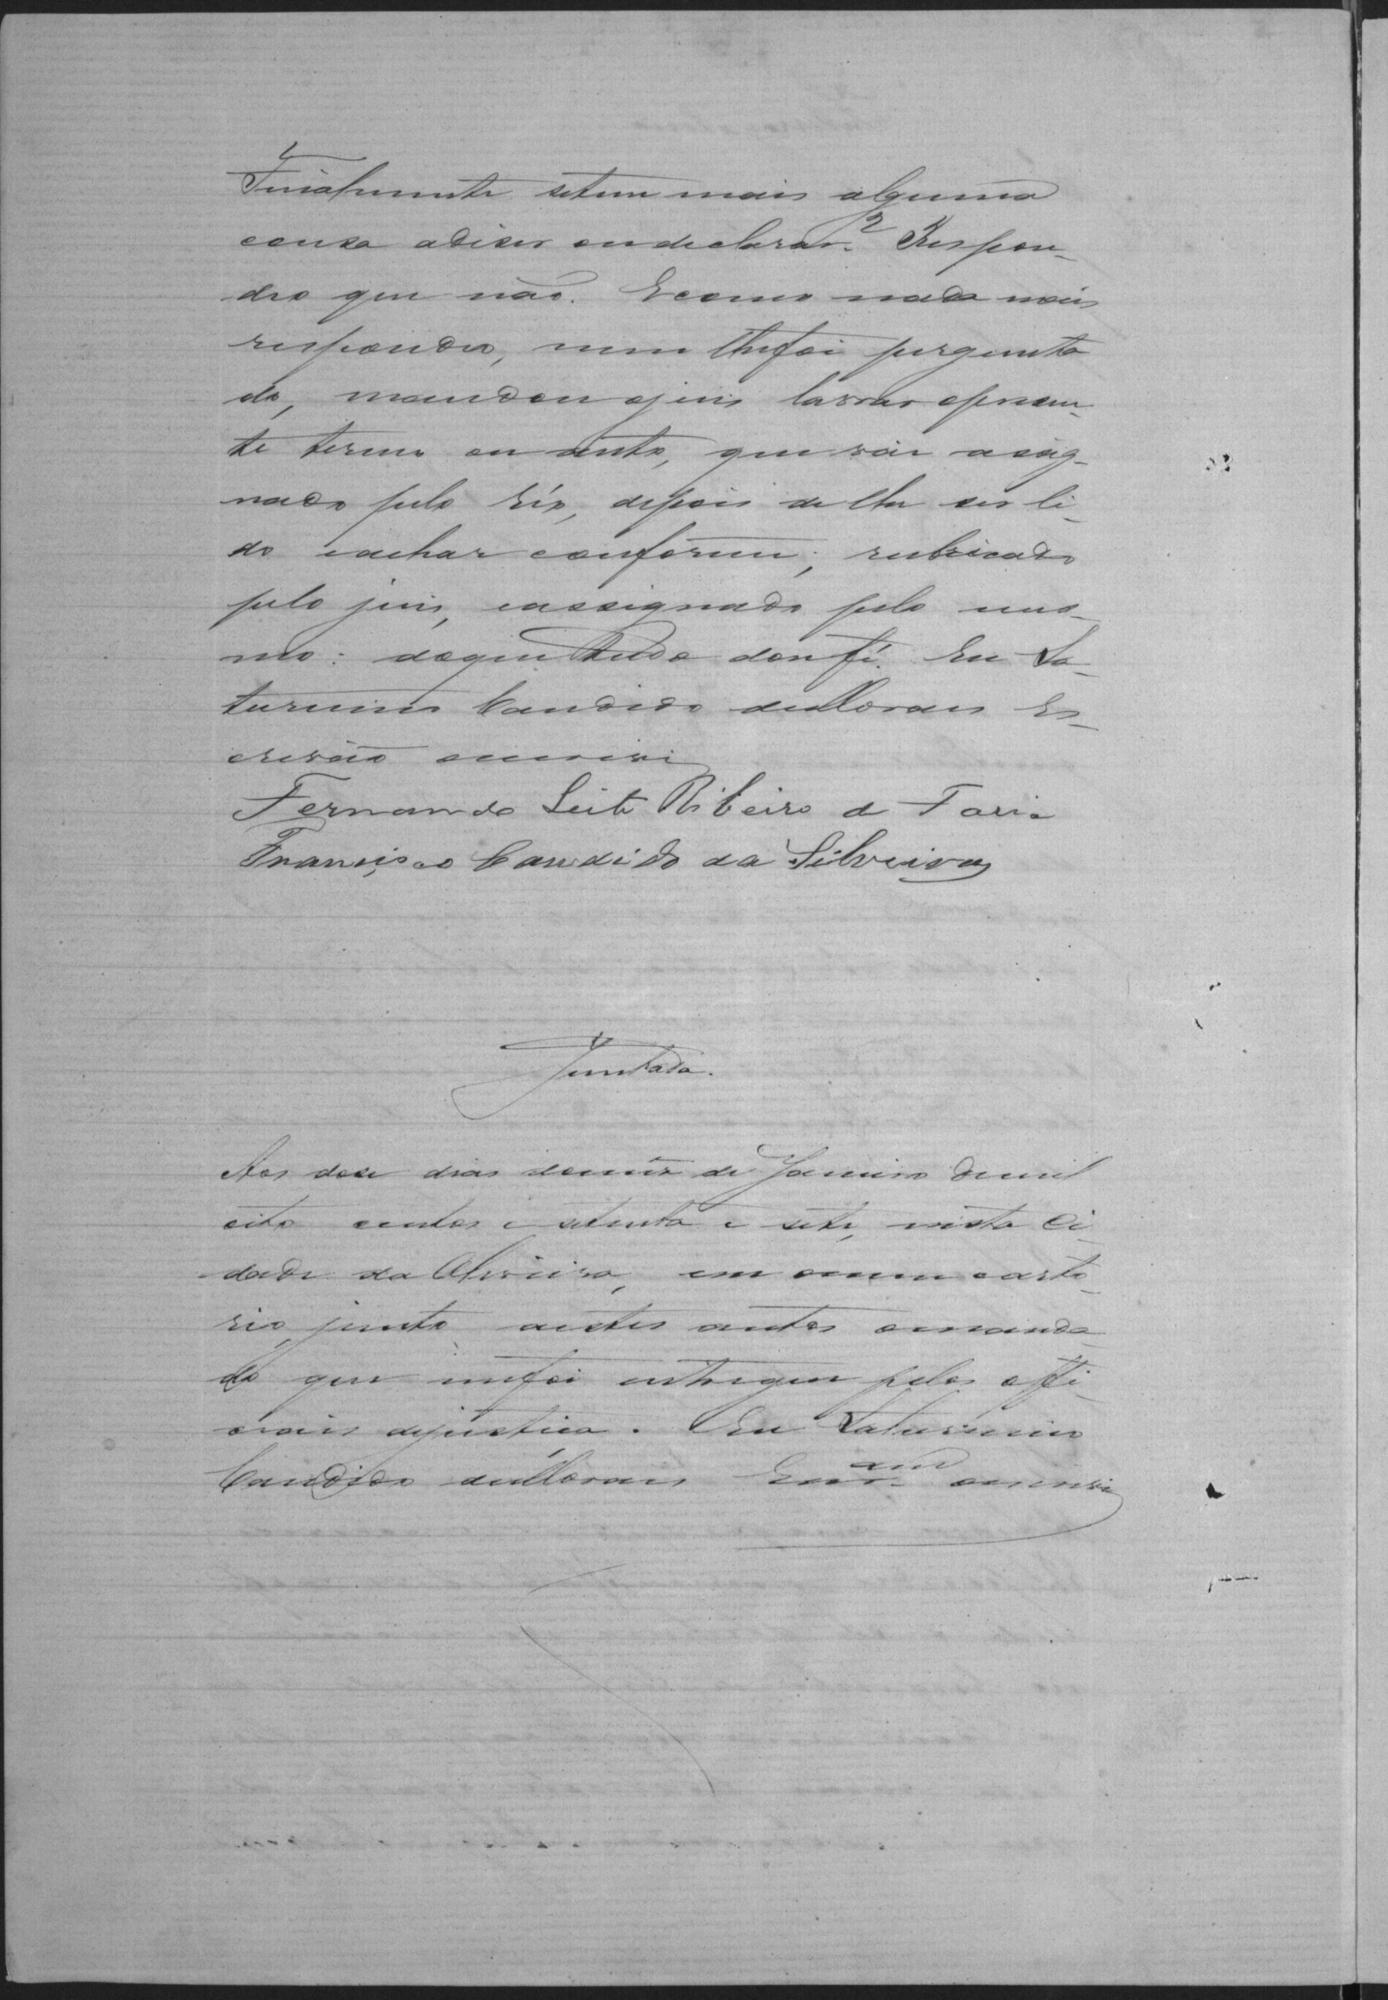 Finalmente setem mais alguma
couza adiser oudeclarar? Respon-
deo que não. Ecomo nada mais
respondeo, nem lhefoi pergunta
do, mandou ojuis lavrar opresen-
te termo ou auto, que vai assig-
nado pelo Réo, depois de lhe ser li-
do eachar conforme, rubricado
pelo juis, eassignado pelo mes-
mo: doque tudo dou fé. Eu Sa-
turnino Candido deMoraes Es-
crivão oescrevi
Fernando Leite Ribeiro de Faria
Francisco Candido da Silveira
Juntada.
Aos dose dias domês de Janeiro demil
oito centos e setenta e sete, nesta Ci-
dade da Oliveira, em omeu carto-
rio, junto aestes autos omanda-
do que mefoi entregue pelos offi-
ciaes dejustiça. Eu Saturnino
Candido deMoraes Escr.am oescrevi